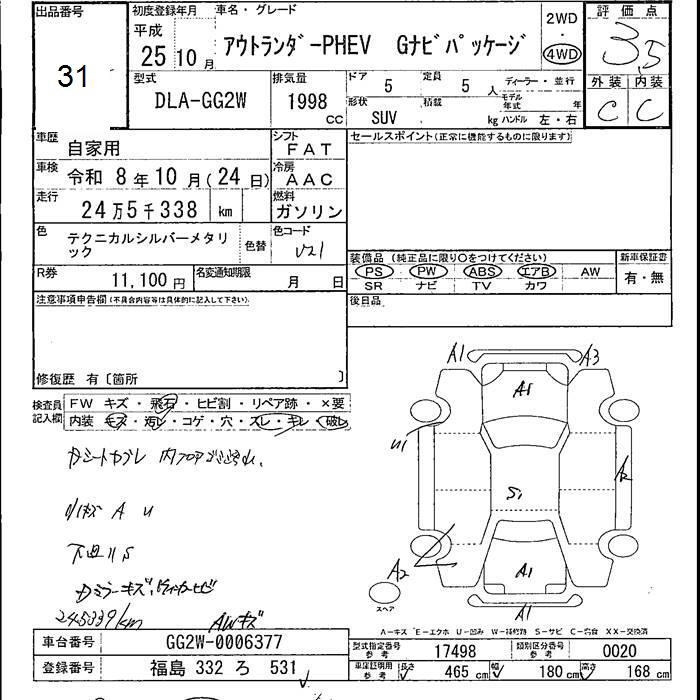 出品番号
31
初度登録年月
平成
25 10 月
車名・グレード
アウトランダ-PHEV Gナビパッケージ
2WD
・
4WD
評価点
3.5
型式
DLA-GG2W
排気量
1998
CC
ドア
5
定員
5
人
ディーラー・並行
モデル
年式
年
形状
SUV
積載
kg
ハンドル 左・右
外装 内装
C C
車歴
自家用
シフト
FAT
セールスポイント(正常に機能するものに限ります)
車検
令和 8 年 10 月(24 日)
冷房
AAC
走行
24万5千338 km
燃料
ガソリン
色
テクニカルシルバーメタリ
ック
色替
色コード
U21
装備品(純正品に限り○をつけてください)
PS PW ABS エアB AW
SR ナビ TV カワ
新車保証書
有・無
R券
11,100 円
名変通知期限
月 日
後日品
注意事項申告欄(不具合内容等は具体的に記入して下さい)
修復歴 有〔箇所 〕
検査員
記入欄
FW キズ・飛石・ヒビ割・リペア跡・×要
内装 キズ・汚レ・コゲ・穴・スレ・キレ・破レ
小キズ A U
下廻りS
245339km
AWキズ
A1 A3
A1
U1
A2
S1
A2
A1
A1
スペア
A-キズ E-エクボ U-凹み W-補修跡 S-サビ C-腐食 XX-交換済
車台番号
GG2W-0006377
型式指定番号
参考
17498
類別区分番号
参考
0020
登録番号
福島 332 ろ 531
車庫証明用
参考
長さ
465 cm
幅
180 cm
高さ
168 cm